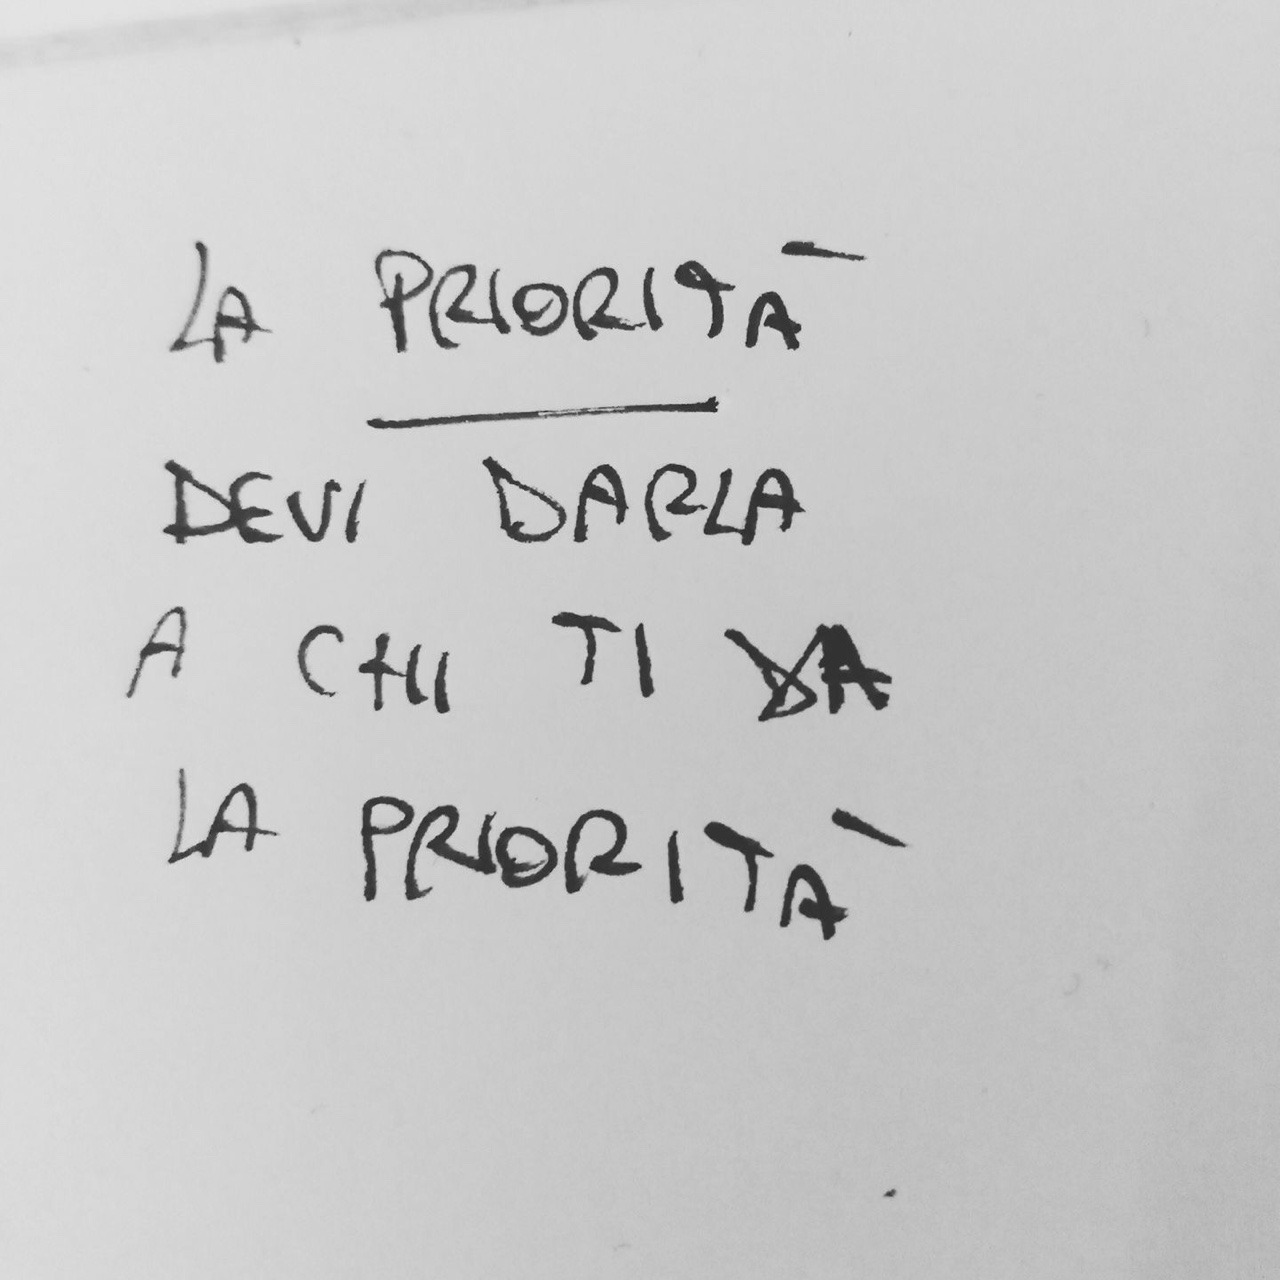 LA PRIORITÀ
DEVI DARLA
A CHI TI DA
LA PRIORITÀ